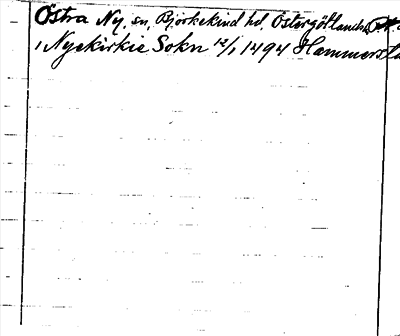 Östra Ny, sn, Björkekind hd, Östergötlands
i Nyekirkie Sokn 12/1 1494 Hammersta